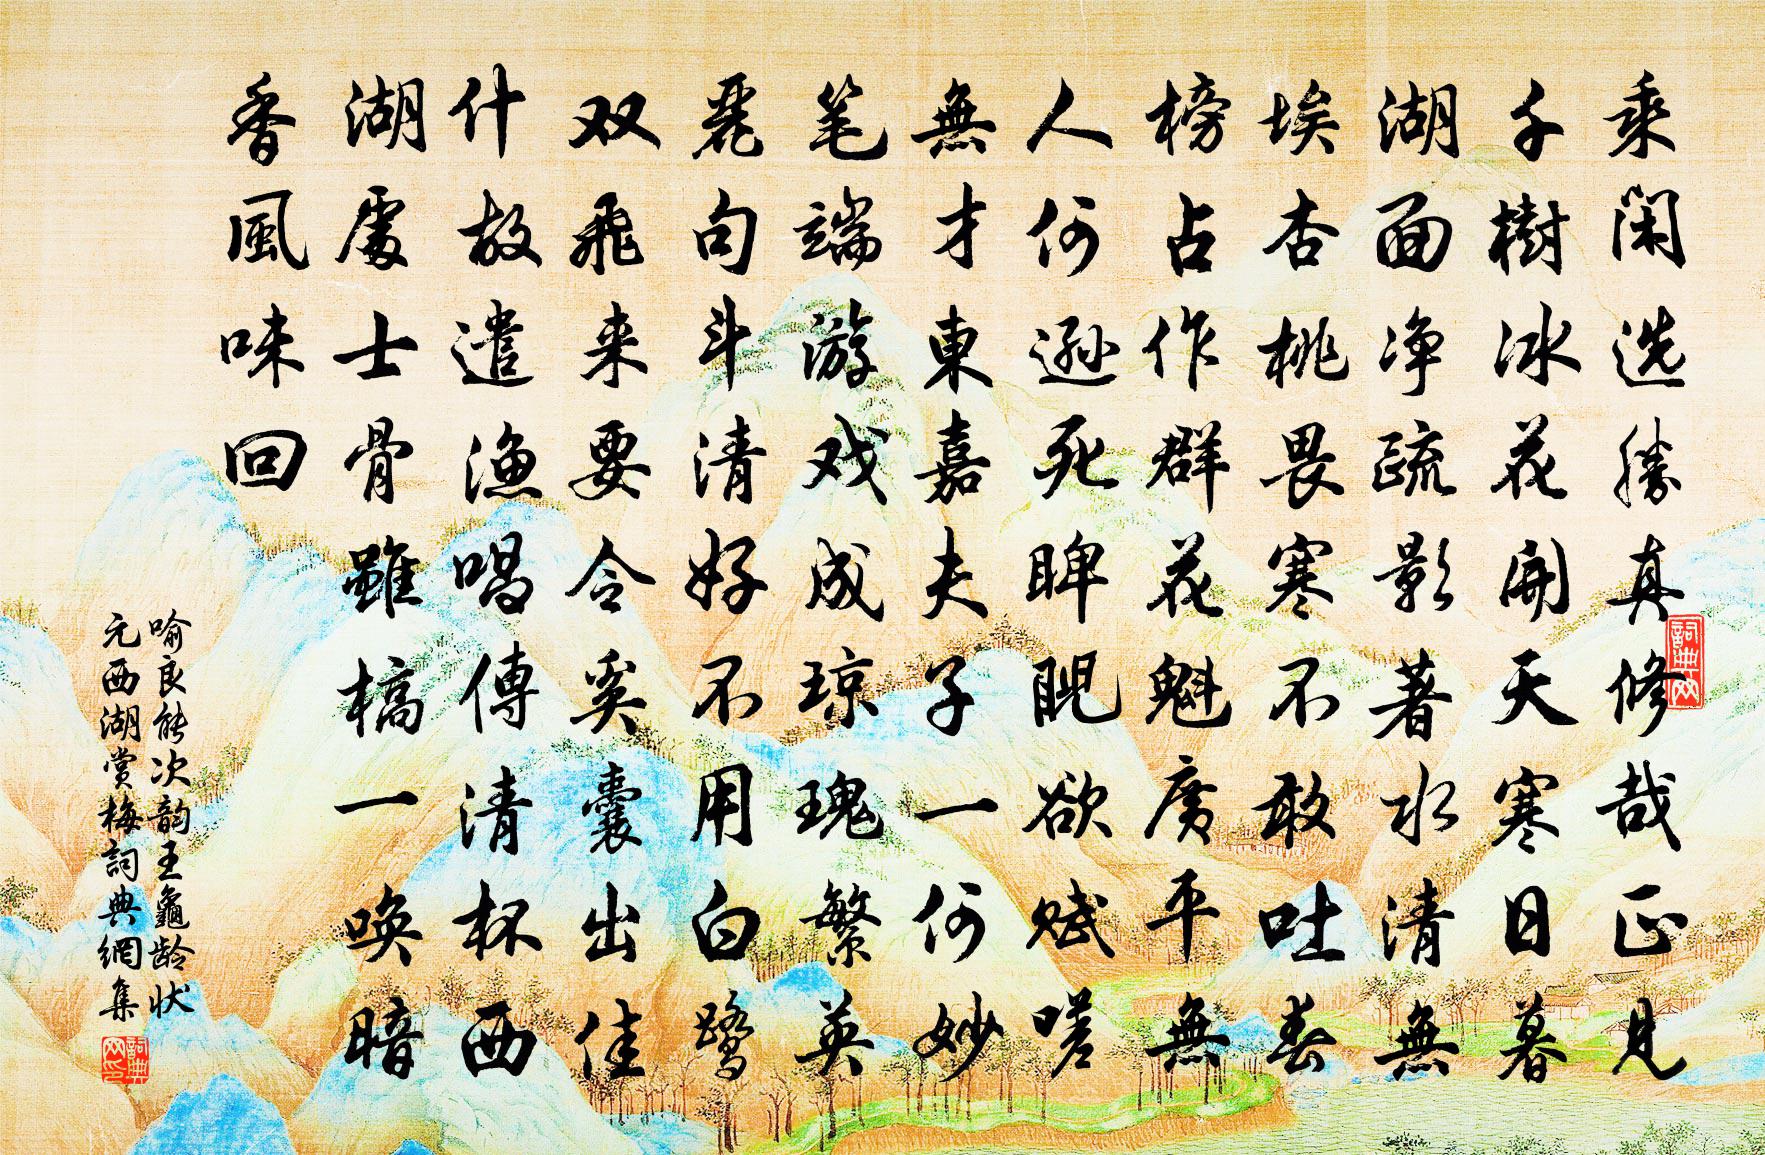 乘闲选勝真修哉正見
千樹冰花開天寒日暮
湖面净疏影著水清無
埃杏桃畏寒不敢吐春
榜占作群花魁廣平無
人何逊死睥睨欲赋嗟
無才東嘉夫子一何妙
笔端游戏成琼瑰繁英
麗句斗清好不用白鹭
双飛来要令奚囊出佳
什故遣漁唱傳清杯西
湖處士骨雖槁一唤暗
香風味回
喻良能次韵王龜龄状
元西湖赏梅詞典網集
詞典网
詞典网印